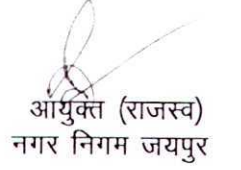 आयुक्त (राजस्व)
नगर निगम जयपुर